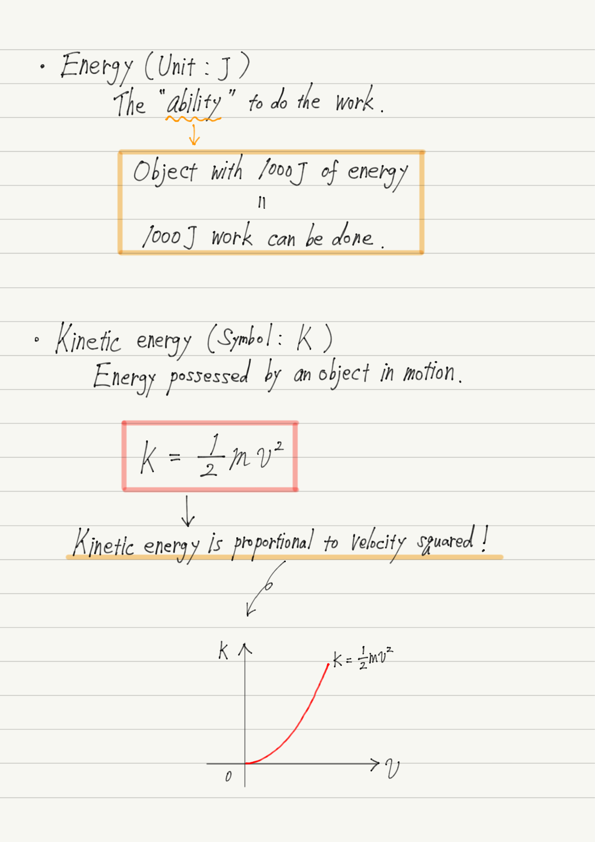 • Energy (Unit : J)
The "ability" to do the work.
Object with 1000J of energy
=
1000J work can be done.
• Kinetic energy (Symbol : K)
Energy possessed by an object in motion.
K = 1/2 mv²
Kinetic energy is proportional to velocity squared!
K
K = 1/2 mv²
0
v